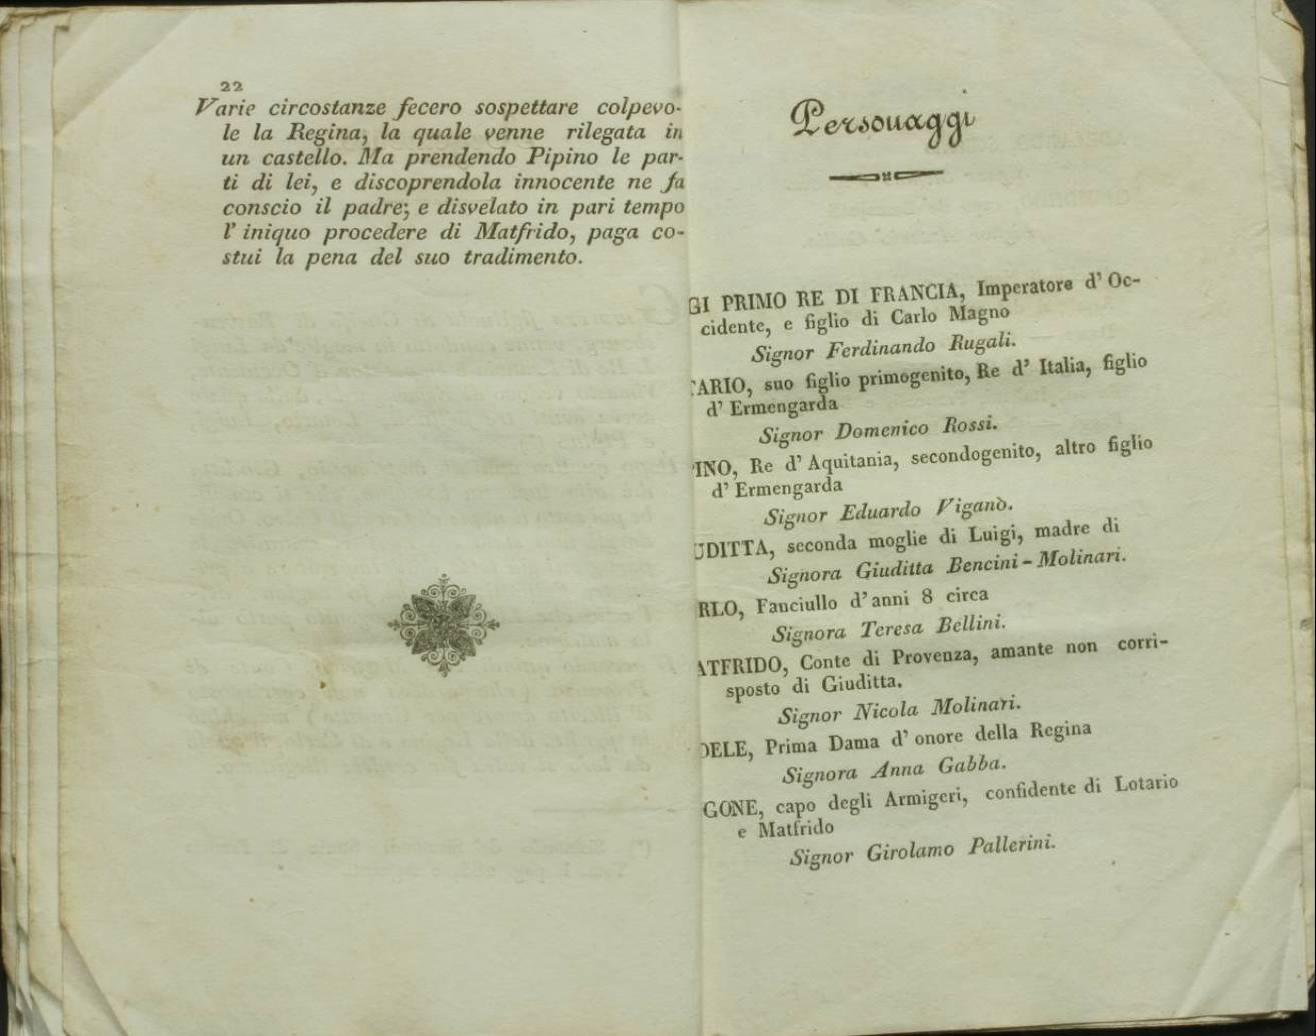 22
Varie circostanze fecero sospettare colpevo-
le la Regina, la quale venne rilegata in
un castello. Ma prendendo Pipino le par-
ti di lei, e discoprendola innocente ne fa
conscio il padre; e disvelato in pari tempo
l' iniquo procedere di Matfrido, paga co-
stui la pena del suo tradimento.
Personaggi
GI PRIMO RE DI FRANCIA, Imperatore d' Oc-
cidente, e figlio di Carlo Magno
Signor Ferdinando Rugali.
TARIO, suo figlio primogenito, Re d' Italia, figlio
d' Ermengarda
Signor Domenico Rossi.
PINO, Re d' Aquitania, secondogenito, altro figlio
d' Ermengarda
Signor Eduardo Viganò.
UDITTA, seconda moglie di Luigi, madre di
Signora Giuditta Bencini-Molinari.
RLO, Fanciullo d' anni 8 circa
Signora Teresa Bellini.
ATFRIDO, Conte di Provenza, amante non corri-
sposto di Giuditta.
Signor Nicola Molinari.
DELE, Prima Dama d' onore della Regina
Signora Anna Gabba.
GONE, capo degli Armigeri, confidente di Lotario
e Matfrido
Signor Girolamo Pallerini.